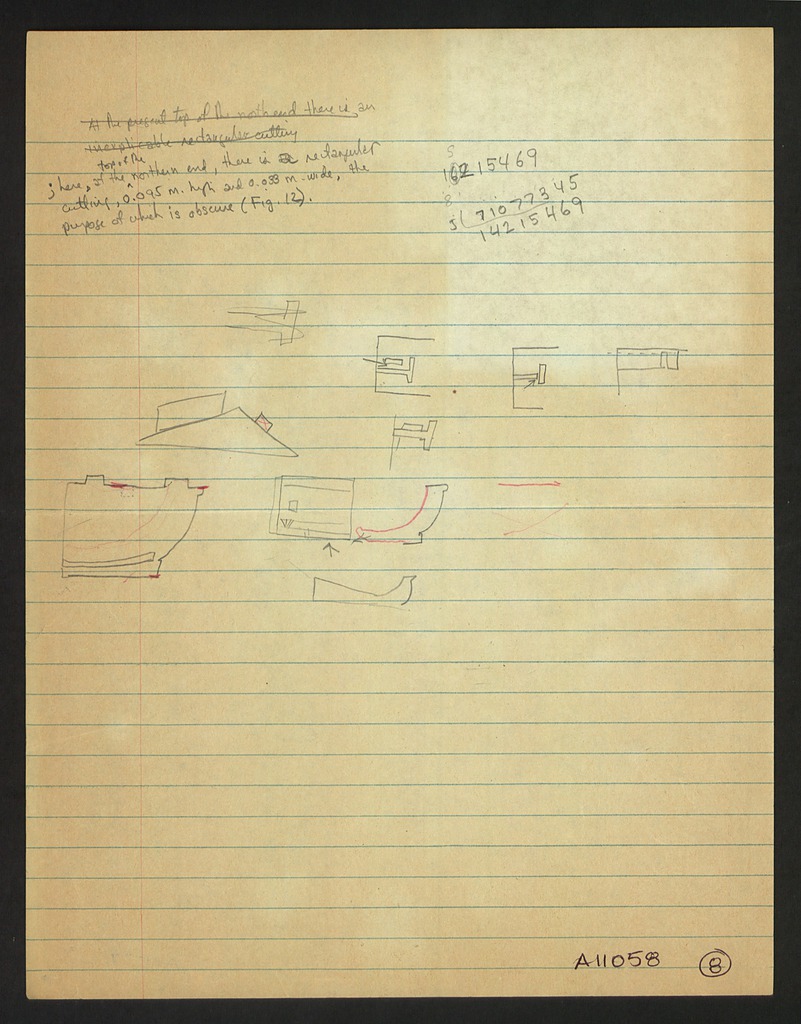 At the present top of the north end there is an
inexplicable rectangular cutting
top of the
; here, at the northern end, there is a rectangular
cutting, 0.095 m. high and 0.033 m. wide, the
purpose of which is obscure (Fig. 12).
5
15469
8
5 71077345
14215469
A11058 8